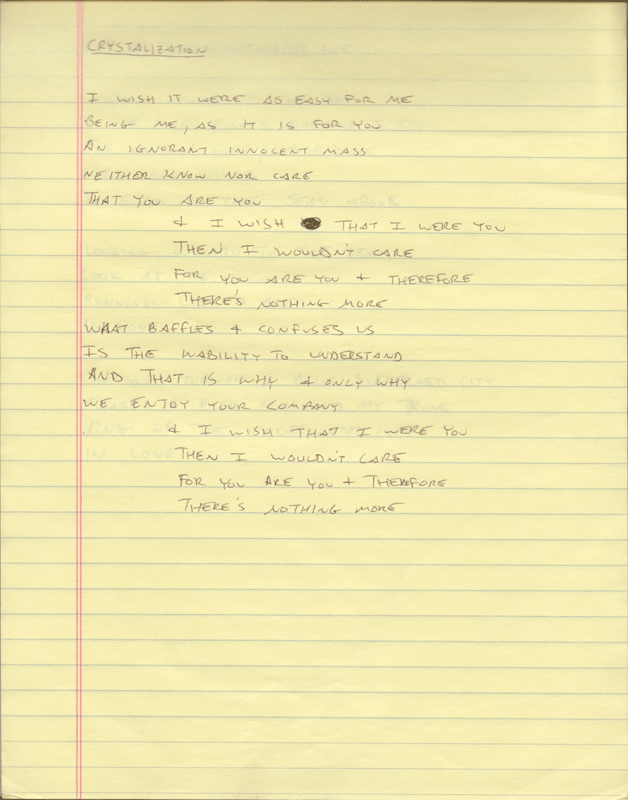 CRYSTALIZATION
I WISH IT WERE AS EASY FOR ME
BEING ME, AS IT IS FOR YOU
AN IGNORANT INNOCENT MASS
NEITHER KNOW NOR CARE
THAT YOU ARE YOU
& I WISH THAT I WERE YOU
THEN I WOULDN'T CARE
FOR YOU ARE YOU & THEREFORE
THERE'S NOTHING MORE
WHAT BAFFLES & CONFUSES US
IS THE INABILITY TO UNDERSTAND
AND THAT IS WHY & ONLY WHY
WE ENJOY YOUR COMPANY
& I WISH THAT I WERE YOU
THEN I WOULDN'T CARE
FOR YOU ARE YOU & THEREFORE
THERE'S NOTHING MORE